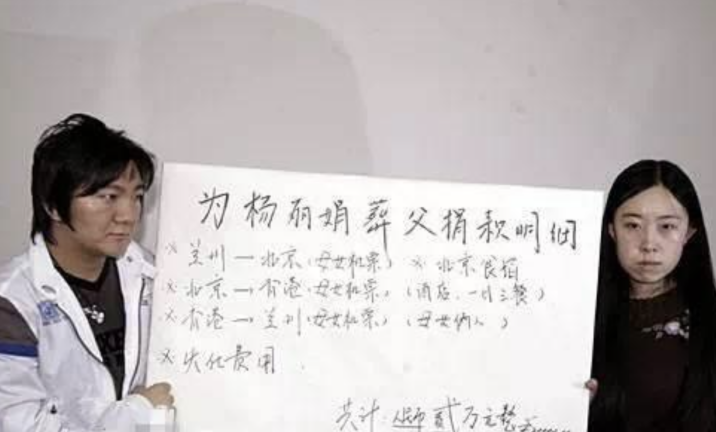 为杨丽娟葬父捐款明细
※兰州→北京(母女机票) ※北京食宿
※北京→香港(母女机票)(酒店、一日三餐)
※香港→兰州(母女机票)(母女俩人)
※火化费用
共计 人民币 贰万元整